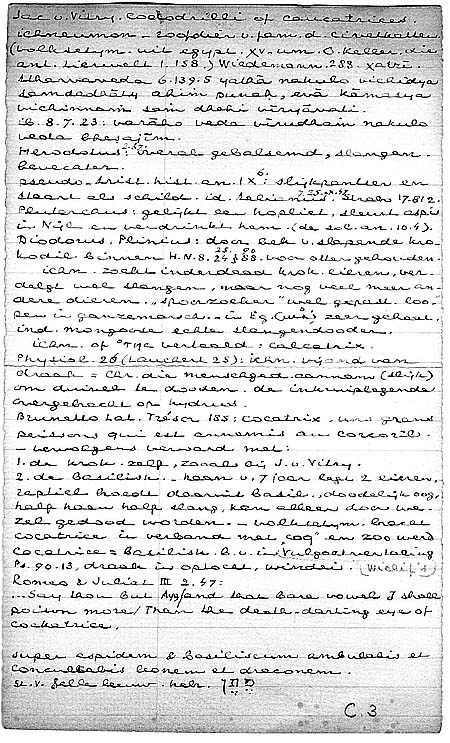 Jac. v. Vitry. cocodrilli of caucatrices.
ichneumon - zoogdier v. fam. d. civetkatten
(volksetym. uit egypt. XV. um. O. Keller, die
ant. tierwelt I. 158.) Wiedemann. 288
Atharvaveda 6.139.5 yathā nakulo vichidya
samdadhāty ahim punaḥ, evā kāmasya
vichinnam sam dhehi vīryāvati.
ib. 8.7.23: varāho veda vīrudham nakulo
veda bhesajīm.
Herodotus: overal gebalsemd, slangen-
bevechter.
pseudo-Arist. hist. an. IX 6: slijkpantser en
staart als schild. id. Strabo 17.812.
Plutarchus: gelijkt een hopliet, sleurt aspis
in Nijl en verdrinkt hem. (de sol. an. 10.4).
Diodorus, Plinius: door bek v. slapende kro-
kodil binnen H.N. 8. voor otter gehouden.
ichn. zoekt inderdaad krok. eieren, ver-
delgt wel slangen, maar nog veel meer an-
dere dieren. "spoorzoeker" wel gepast. loo-
pen in ganzemarsch. in Eg. zeer gehaat,
ind. mongoose echte slangendooder.
ichn. of vertaald: calcatrix.
Physiol. 26 (Lauchert 25): ichn. vijand van
draak = Chr. die menschged. aannam (slijk)
om duivel te dooden. de inkruipende
overgebracht op hydrus.
Brunetto Lat. Trésor 185: cocatrix, uns grans
peissons qui est annemis au corcorils.
- vervolgens verward met:
1. de krok. zelf, zooals bij J. v. Vitry.
2. de Basilisk. - haan v. 7 jaar legt 2 eieren,
reptiel broedt daaruit Basil., doodelijk oog,
half haan half slang, kan alleen door we-
zel gedood worden. - volksetym. bracht
cocatrice in verband met "coq" en zoo werd
cocatrice = Basilisk b.v. in Vulgaatvertaling
Ps. 90.13, draak is aptoet, (Wichif's)
Romeo & Juliet III 2.47:
... Say thou but Aye/and that bare vowel I shall
poison more/Than the death-darting eye of
cockatrice.
super aspidem & Basiliscum ambulabis et
conculcabis leonem et draconem.
st. v. felle leeuw. hebr.
C. 3